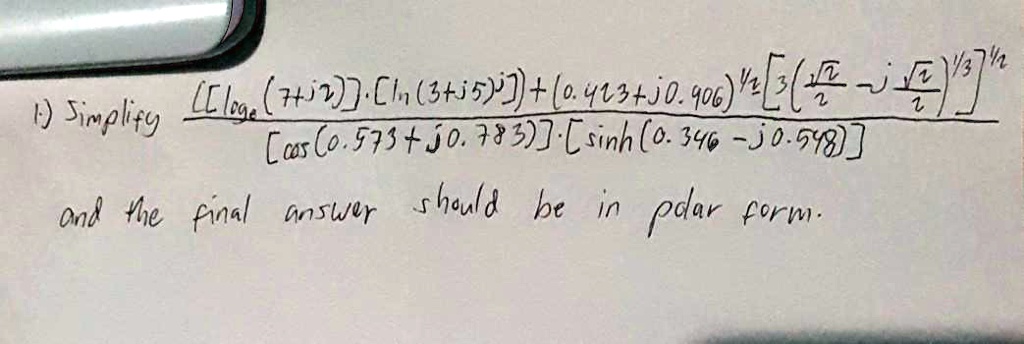 1.) Simplify ([log_e(7+j2)]·[ln(3+j5)^j])+(0.423+j0.906)^1/2[3(√2/2 -j √2/2)^1/3]^1/2
[cos(0.573+j0.783)]·[sinh(0.346-j0.548)]
and the final answer should be in polar form.